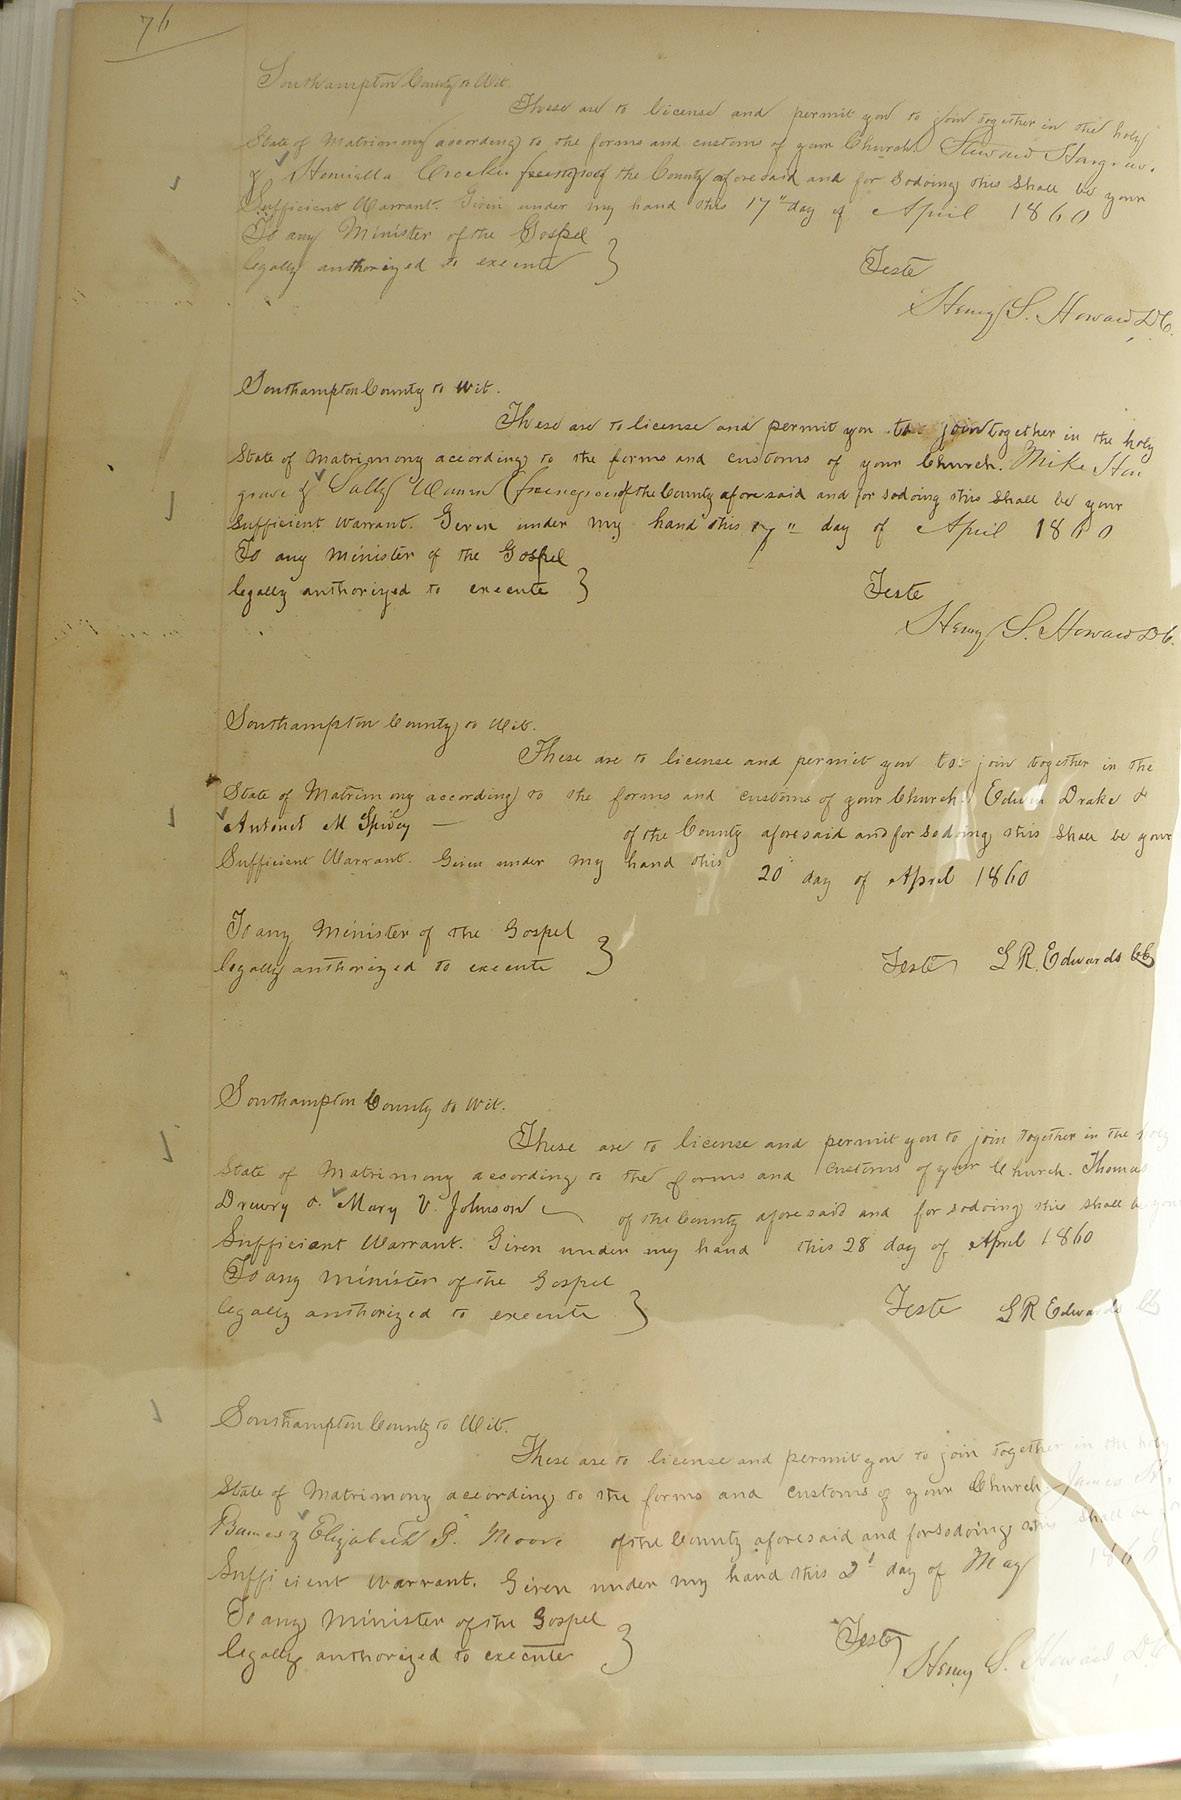 76
Southampton County to Wit.
These are to license and permit you to join together in the holy
State of Matrimony according to the forms and customs of your Church.
& Henrietta Crocker free negroes of the County aforesaid and for So doing this Shall be your
Sufficient Warrant. Given under my hand this 17" day of April 1860
To any Minister of the Gospel
legally authorized to execute }
Teste
Henry S. Howard D.C.
Southampton County to Wit.
These are to license and permit you to join together in the holy
State of Matrimony according to the forms and customs of your Church. Mike Har
grave & Sally Mann (free negroes of the County aforesaid and for so doing this Shall be your
Sufficient Warrant. Given under my hand this 17" day of April 1860
To any minister of the Gospel
legally authorized to execute }
Teste
Henry S. Howard D.C.
Southampton County to Wit.
These are to license and permit you to join together in the
State of Matrimony according to the forms and customs of your Church. Edwin Drake &
Antonet M Spivey — of the County aforesaid and for So doing this Shall be your
Sufficient Warrant. Given under my hand this 20" day of April 1860
To any Minister of the Gospel
legally authorized to execute }
Teste L R. Edwards CC
Southampton County to Wit.
These are to license and permit you to join together in the holy
State of Matrimony according to the forms and customs of your Church. Thomas
Drewry & Mary V. Johnson of the County aforesaid and for so doing this shall be your
Sufficiant Warrant. Given under my hand this 28 day of April 1860
To any minister of the Gospel
legally authorized to execute }
Teste L R Edwards CC
Southampton County to Wit.
These are to license and permit you to join together in the holy
State of Matrimony according to the forms and customs of your Church James
Barnes & Elizabeth P. Moore of the County aforesaid and for so doing this shall be
Sufficient Warrant. Given under my hand this 2d day of May 1860
To any Minister of the Gospel
legally authorized to execute }
Teste
Henry S. Howard D.C.